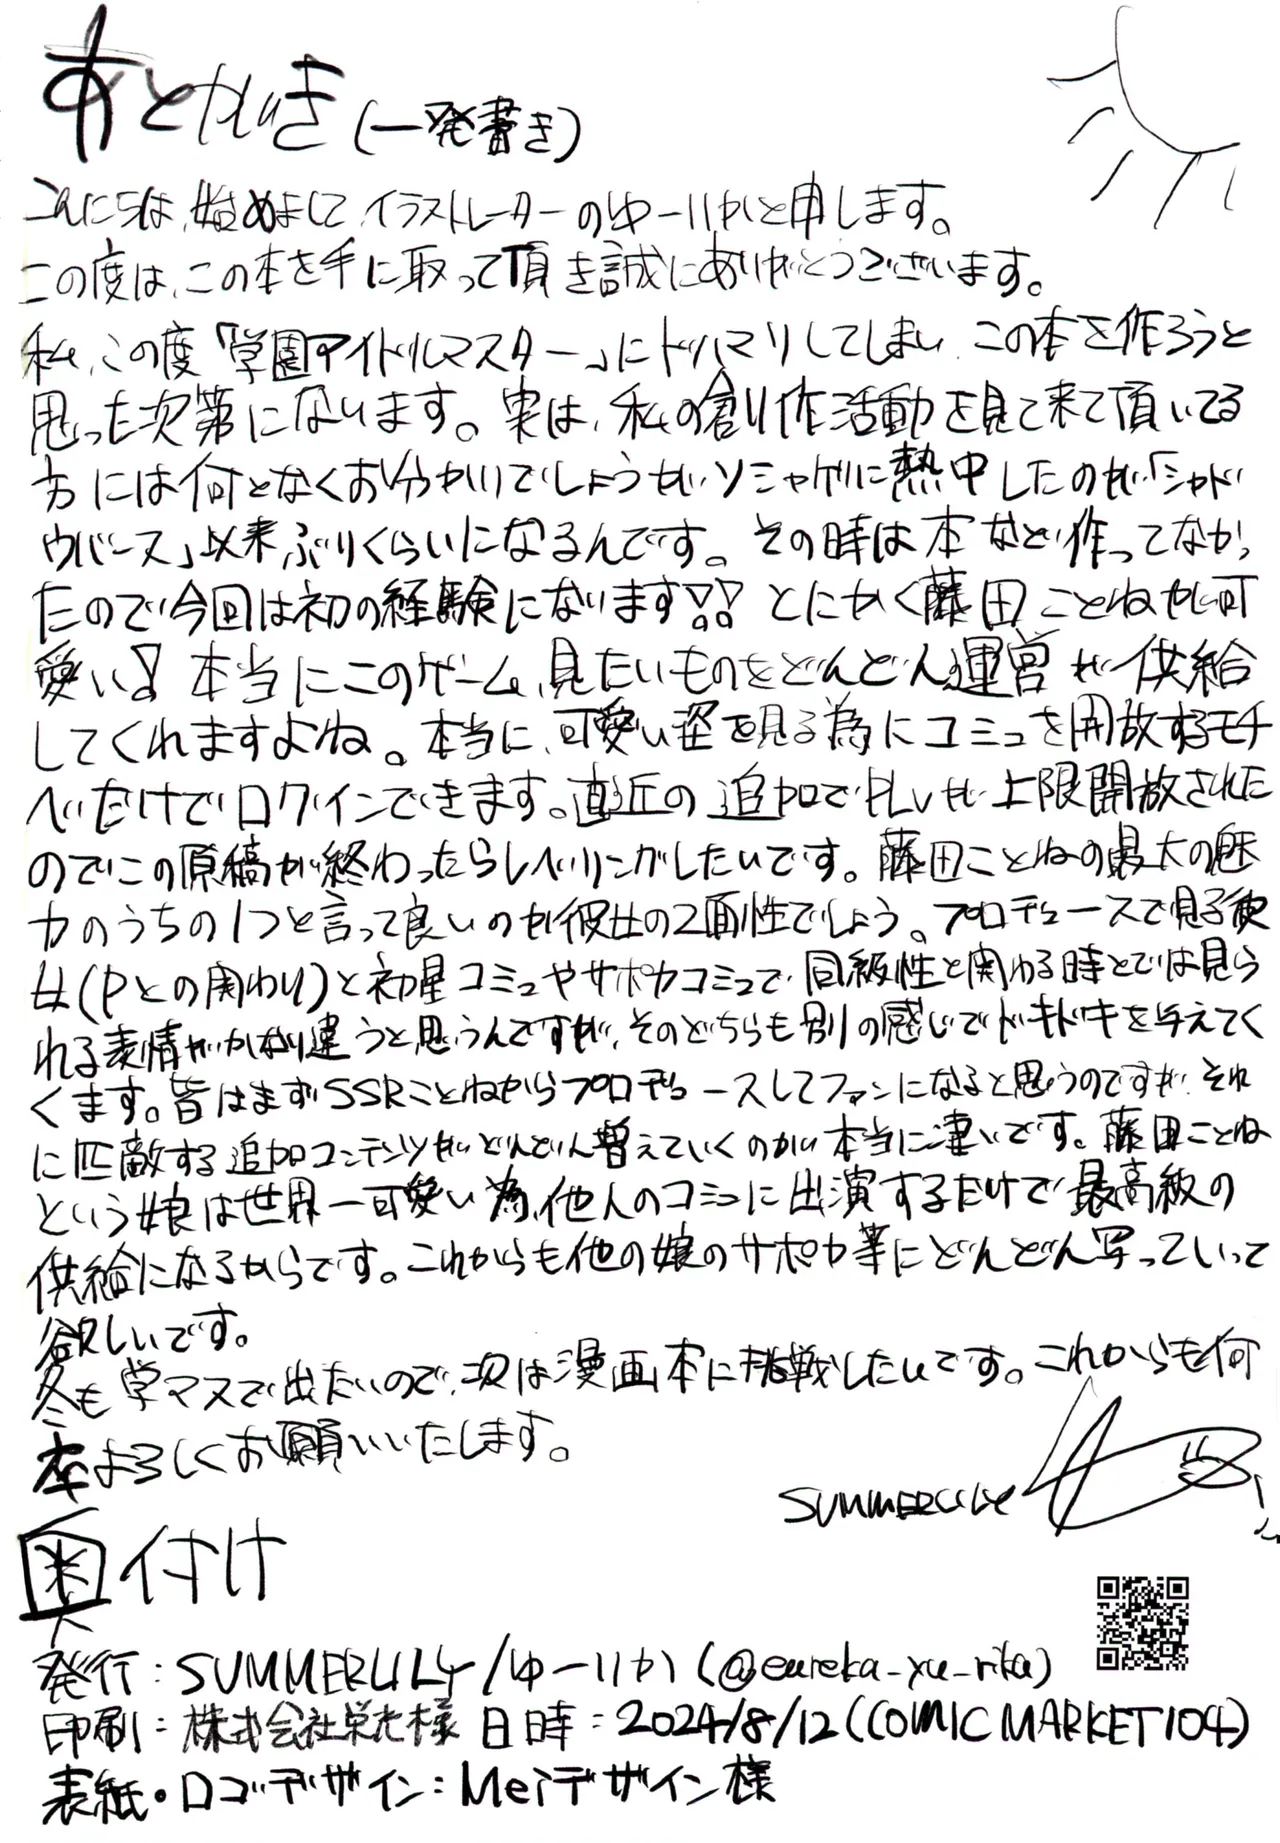 あとがき(一発書き)
こんにちは、始めまして、イラストレーターのゆーりかと申します。
この度は、この本を手に取って頂き誠にありがとうございます。
私、この度「学園アイドルマスター」にドハマりしてしまい、この本を作ろうと
思った次第になります。実は、私の創作活動を見て来て頂いてる
方には何となくお分かりでしょうが、ソシャゲに熱中したのが「シャド
ウバース」以来ぶりくらいになるんです。その時は本など作ってなかっ
たので今回は初の経験になります!! とにかく藤田ことねが可
愛い! 本当にこのゲーム、見たいものをどんどん運営が供給
してくれますよね。本当に、可愛い姿を見る為にコミュを開放するモチ
べだけでログインできます。直近の追加でPLvが上限開放された
のでこの原稿が終わったらレベリングがしたいです。藤田ことねの最大の魅
力のうちの1つと言って良いのが彼女の2面性でしょう。プロデュースで見る彼
女(Pとの関わり)と初星コミュやサポカコミュで、同級性と関わる時とでは見ら
れる表情がかなり違うと思うんですが、そのどちらも別の感じでドキドキを与えてく
くます。皆はまずSSRことねからプロデュースしてファンになると思うのですが、それ
に匹敵する追加コンテンツがどんどん増えていくのが本当に凄いです。藤田ことね
という娘は世界一可愛い為、他人のコミュに出演するだけで最高級の
供給になるからです。これからも他の娘のサポカ等にどんどん写っていって
欲しいです。
冬も学マスで出たいので、次は漫画本に挑戦したいです。これからも何
卒よろしくお願いいたします。
SUMMERLILY
奥付け
発行:SUMMERLILY/ゆーりか(@eureka_yu_rika)
印刷:株式会社栄光様 日時:2024/8/12(COMIC MARKET104)
表紙・ロゴデザイン:Meiデザイン様